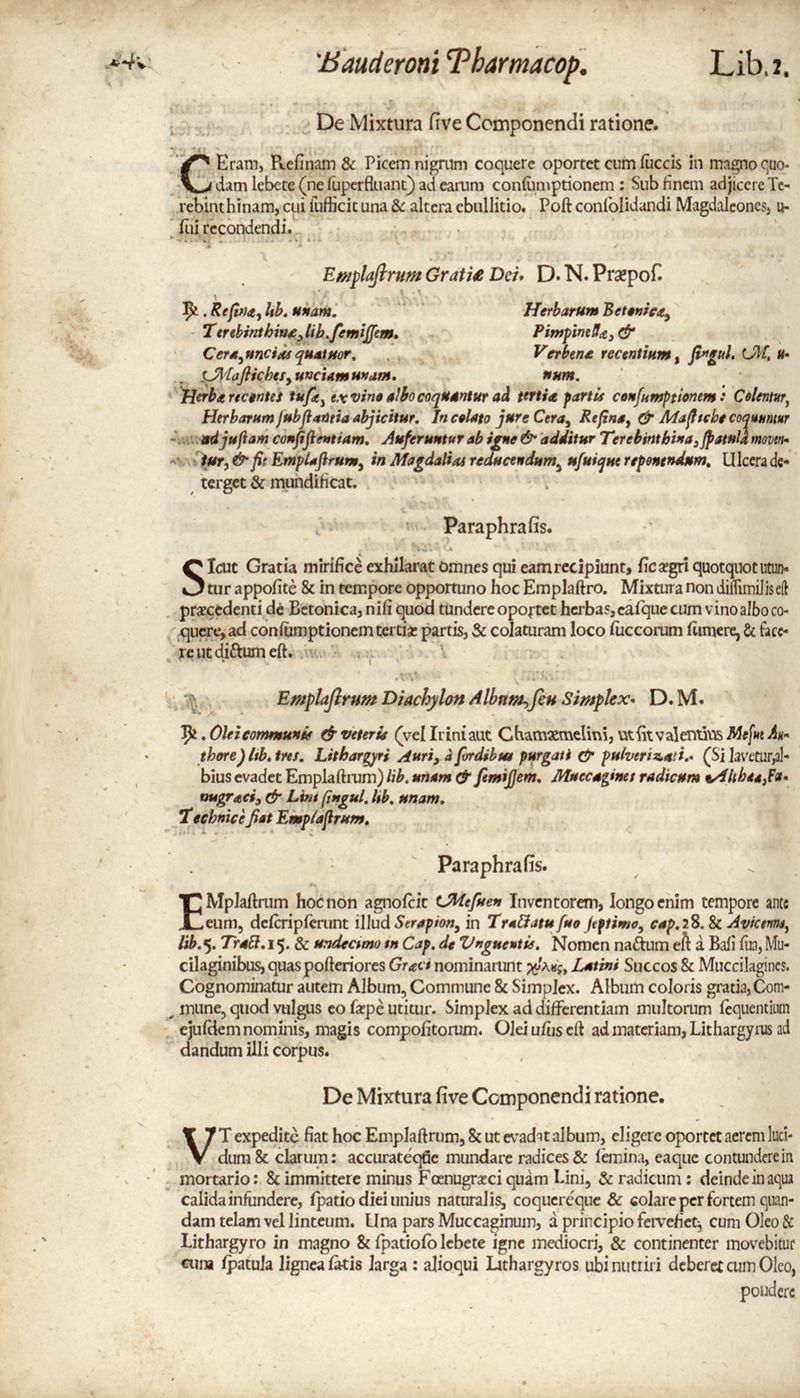 Bauderoni Pharmacop. Lib.2.
De Mixtura ſive Componendi ratione.
CEram, Reſinam & Picem nigrum coquere oportet cum ſuccis in magno quo-
dam lebete (ne ſuperfluant) ad earum conſumptionem : Sub finem adjicere Te-
rebinthinam, cui ſufficit una & altera ebullitio. Poſt conſolidandi Magdaleones, u-
ſui recondendi.
Emplaſtrum Gratiæ Dei. D. N. Præpoſ.
℞. Reſinæ, lib. unam.
Terebinthinæ, lib. ſemiſſem.
Ceræ, uncias quatuor.
Maſtiches, unciam unam.
Herbarum Betonicæ,
Pimpinellæ, &
Verbenæ recentium, ſingul. M. u-
num.
Herbæ recentes tuſæ, ex vino albo coquantur ad tertiæ partis conſumptionem : Colentur,
Herbarum ſubſtantia abjicitur. In colato jure Cera, Reſina, & Maſtiche coquuntur
ad juſtam conſiſtentiam. Auferuntur ab igne & additur Terebinthina, ſpatulâ moven-
tur, & fit Emplaſtrum, in Magdalias reducendum, uſuique reponendum. Ulcera de-
terget & mundificat.
Paraphraſis.
SIcut Gratia mirificè exhilarat omnes qui eam recipiunt, ſic ægri quotquot utun-
tur appoſitè & in tempore opportuno hoc Emplaſtro. Mixtura non diſſimilis eſt
præcedenti de Betonica, niſi quod tundere oportet herbas, eáſque cum vino albo co-
quere, ad conſumptionem tertiæ partis, & colaturam loco ſuccorum ſumere, & face-
re ut dictum eſt.
Emplaſtrum Diachylon Album, ſeu Simplex. D. M.
℞. Olei communis & veteris (vel Irini aut Chamæmelini, ut ſit valentius Meſue Au-
thore) lib. tres. Lithargyri Auri, à ſordibus purgati & pulverizati.. (Si lavetur, al-
bius evadet Emplaſtrum) lib. unam & ſemiſſem. Muccagines radicum Altheæ, Fæ-
nugræci, & Lini ſingul. lib. unam.
Technicè fiat Emplaſtrum.
Paraphraſis.
EMplaſtrum hoc non agnoſcit Meſuen Inventorem, longo enim tempore ante
eum, deſcripſerunt illud Serapion, in Tractatu ſuo ſeptimo, cap. 28. & Avicenna,
lib. 5. Tract. 15. & undecimo in Cap. de Unguentis. Nomen nactum eſt à Baſi ſua, Mu-
cilaginibus, quas poſteriores Græci nominarunt χύλους, Latini Succos & Muccilagines.
Cognominatur autem Album, Commune & Simplex. Album coloris gratia, Com-
mune, quod vulgus eo ſæpè utitur. Simplex ad differentiam multorum ſequentium
ejuſdem nominis, magis compoſitorum. Olei uſus eſt ad materiam, Lithargyrus ad
dandum illi corpus.
De Mixtura ſive Componendi ratione.
VT expeditè fiat hoc Emplaſtrum, & ut evadat album, eligere oportet aerem luci-
dum & clarum : accuratéque mundare radices & ſemina, eaque contundere in
mortario : & immittere minus Fœnugræci quàm Lini, & radicum : deinde in aqua
calida infundere, ſpatio diei unius naturalis, coqueréque & colare per fortem quan-
dam telam vel linteum. Una pars Muccaginum, à principio fervefiet, cum Oleo &
Lithargyro in magno & ſpatioſo lebete igne mediocri, & continenter movebitur
cum ſpatula lignea ſatis larga : alioqui Lithargyros ubi nutriri deberet cum Oleo,
pondere